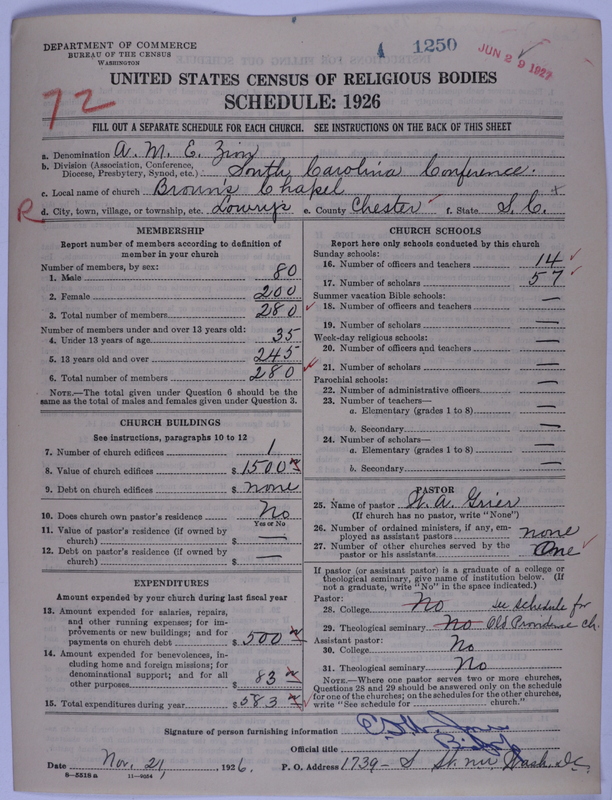 DEPARTMENT OF COMMERCE
BUREAU OF THE CENSUS
WASHINGTON
4 1250
JUN 29 1927
UNITED STATES CENSUS OF RELIGIOUS BODIES
SCHEDULE: 1926
72
FILL OUT A SEPARATE SCHEDULE FOR EACH CHURCH. SEE INSTRUCTIONS ON THE BACK OF THIS SHEET
a. Denomination A. M. E. Zion
b. Division (Association, Conference, Diocese, Presbytery, Synod, etc.) South Carolina Conference.
c. Local name of church Brown's Chapel
R d. City, town, village, or township, etc. Lowrys e. County Chester f. State S. C. x
MEMBERSHIP
Report number of members according to definition of
member in your church
Number of members, by sex:
1. Male 80
2. Female 200
3. Total number of members 280
Number of members under and over 13 years old:
4. Under 13 years of age 35
5. 13 years old and over 245
6. Total number of members 280
NOTE.—The total given under Question 6 should be the
same as the total of males and females given under Question 3.
CHURCH BUILDINGS
See instructions, paragraphs 10 to 12
7. Number of church edifices 1
8. Value of church edifices $1500
9. Debt on church edifices $ none
10. Does church own pastor's residence No
Yes or No
11. Value of pastor's residence (if owned by
church) $ —
12. Debt on pastor's residence (if owned by
church) $ —
EXPENDITURES
Amount expended by your church during last fiscal year
13. Amount expended for salaries, repairs,
and other running expenses; for im-
provements or new buildings; and for
payments on church debt $500
14. Amount expended for benevolences, in-
cluding home and foreign missions; for
denominational support; and for all
other purposes $ 83
15. Total expenditures during year $583
CHURCH SCHOOLS
Report here only schools conducted by this church
Sunday schools:
16. Number of officers and teachers 14
17. Number of scholars 57
Summer vacation Bible schools:
18. Number of officers and teachers —
19. Number of scholars —
Week-day religious schools:
20. Number of officers and teachers —
21. Number of scholars —
Parochial schools:
22. Number of administrative officers —
23. Number of teachers—
a. Elementary (grades 1 to 8) —
b. Secondary —
24. Number of scholars—
a. Elementary (grades 1 to 8) —
b. Secondary —
PASTOR
25. Name of pastor W. A. Grier
(If church has no pastor, write "None")
26. Number of ordained ministers, if any, em-
ployed as assistant pastors none
27. Number of other churches served by the
pastor or his assistants One
If pastor (or assistant pastor) is a graduate of a college or
theological seminary, give name of institution below. (If
not a graduate, write "No" in the space indicated.)
Pastor:
28. College No See schedule for
29. Theological seminary No Old Providence Ch.
Assistant pastor:
30. College No
31. Theological seminary No
NOTE.—Where one pastor serves two or more churches,
Questions 28 and 29 should be answered only on the schedule
for one of the churches; on the schedules for the other churches,
write "See schedule for church."
Signature of person furnishing information
Official title Bishop
Date Nov. 21, 1926. P. O. Address 1739 - S St. NW Wash. D.C.
6—5518a 11—9054